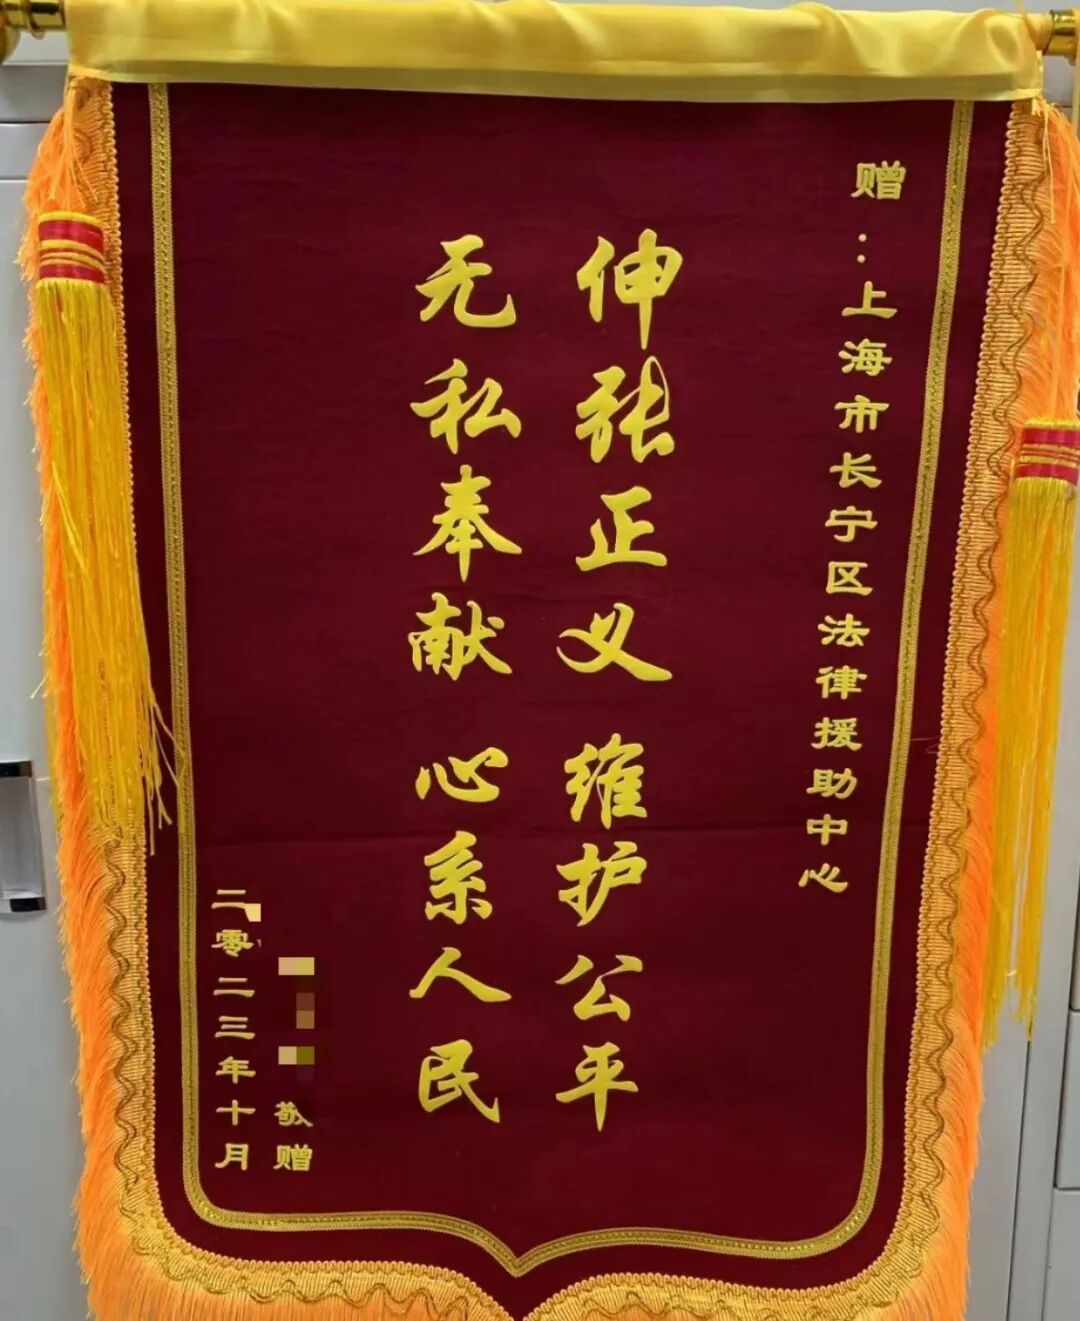 赠：上海市长宁区法律援助中心
伸张正义 维护公平
无私奉献 心系人民
敬赠
二零二三年十月